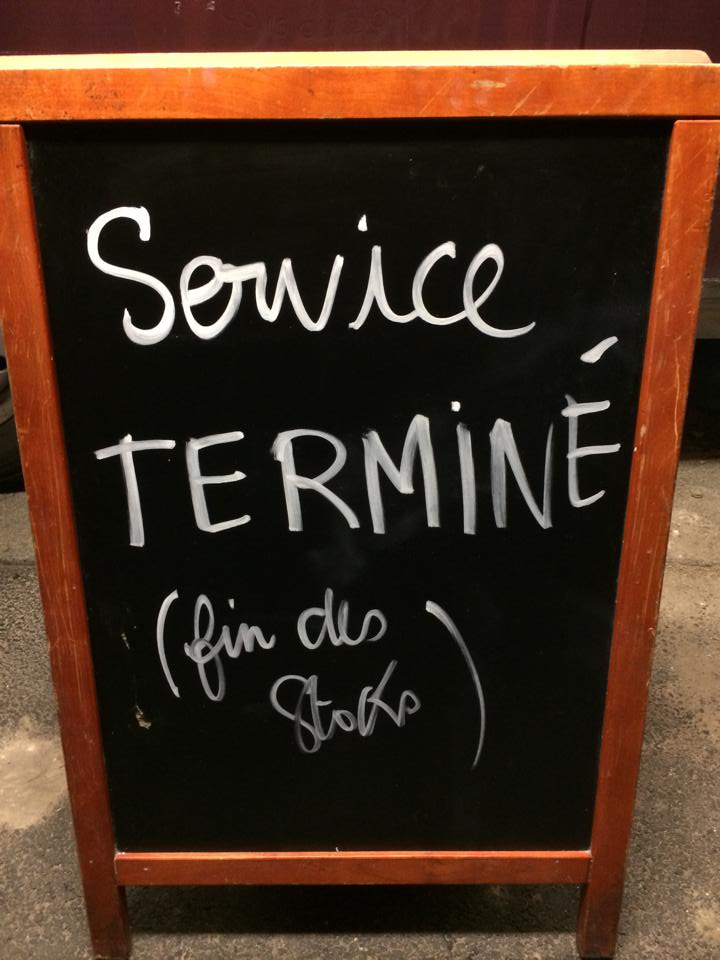 Service
TERMINÉ
(fin des
Stocks)